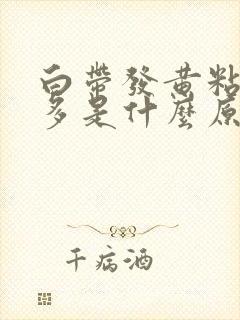 白帶發黄粘
多是什麼原
千病酒